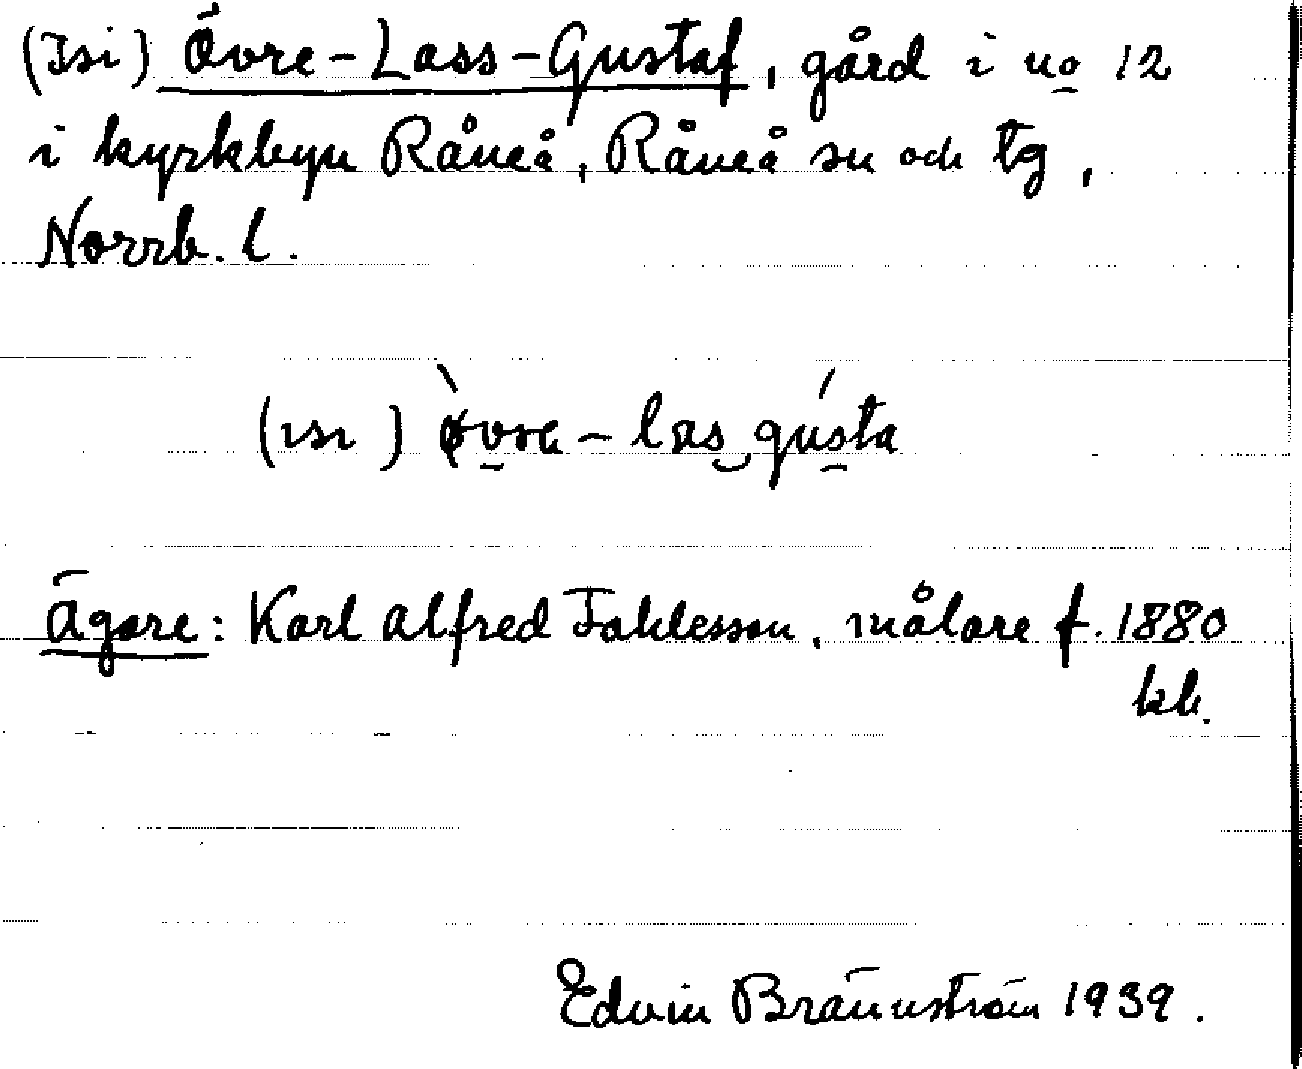 (Isi) Övre-Lass-Gustaf, gård i no 12
i kyrkbyn Råneå, Råneå sn och tg,
Norrb. l.
(ısı) ø̀vrɑ-las gústa
Ägare: Karl Alfred Fohlesson, målare f. 1880
kb.
Edvin Brännström 1939.